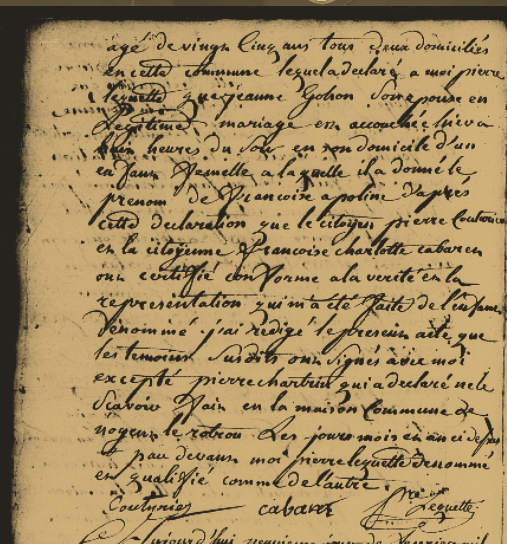 agé de vingt cinq ans tous deux domiciliés
en cette commune lequel a declaré a moi pierre
lequette que jeanne Gohon son epouse en
Legitime mariage est accouchée hier a
huit heures du soir en son domicile d'un
enfant femelle a laquelle il a donné le
prenom de françoise apoline d'après
cette declaration que le citoyen pierre Couturier
et la citoyenne françoise charlotte cabaret
ont certifié conforme a la verité et la
representation qui m'a été faite de l'enfant
denommé j'ai redigé le present acte que
les temoins susdits ont signés avec moi
excepté pierre chartrin qui a declaré ne le
Scavoir fait en la maison Commune de
nogent le rotrou Les jours mois et an ci
pau devant moi pierre lequette denommé
et qualiffié comme de l'autre
Couturier cabaret Pre Lequette
aujourd'hui neuvieme jour de